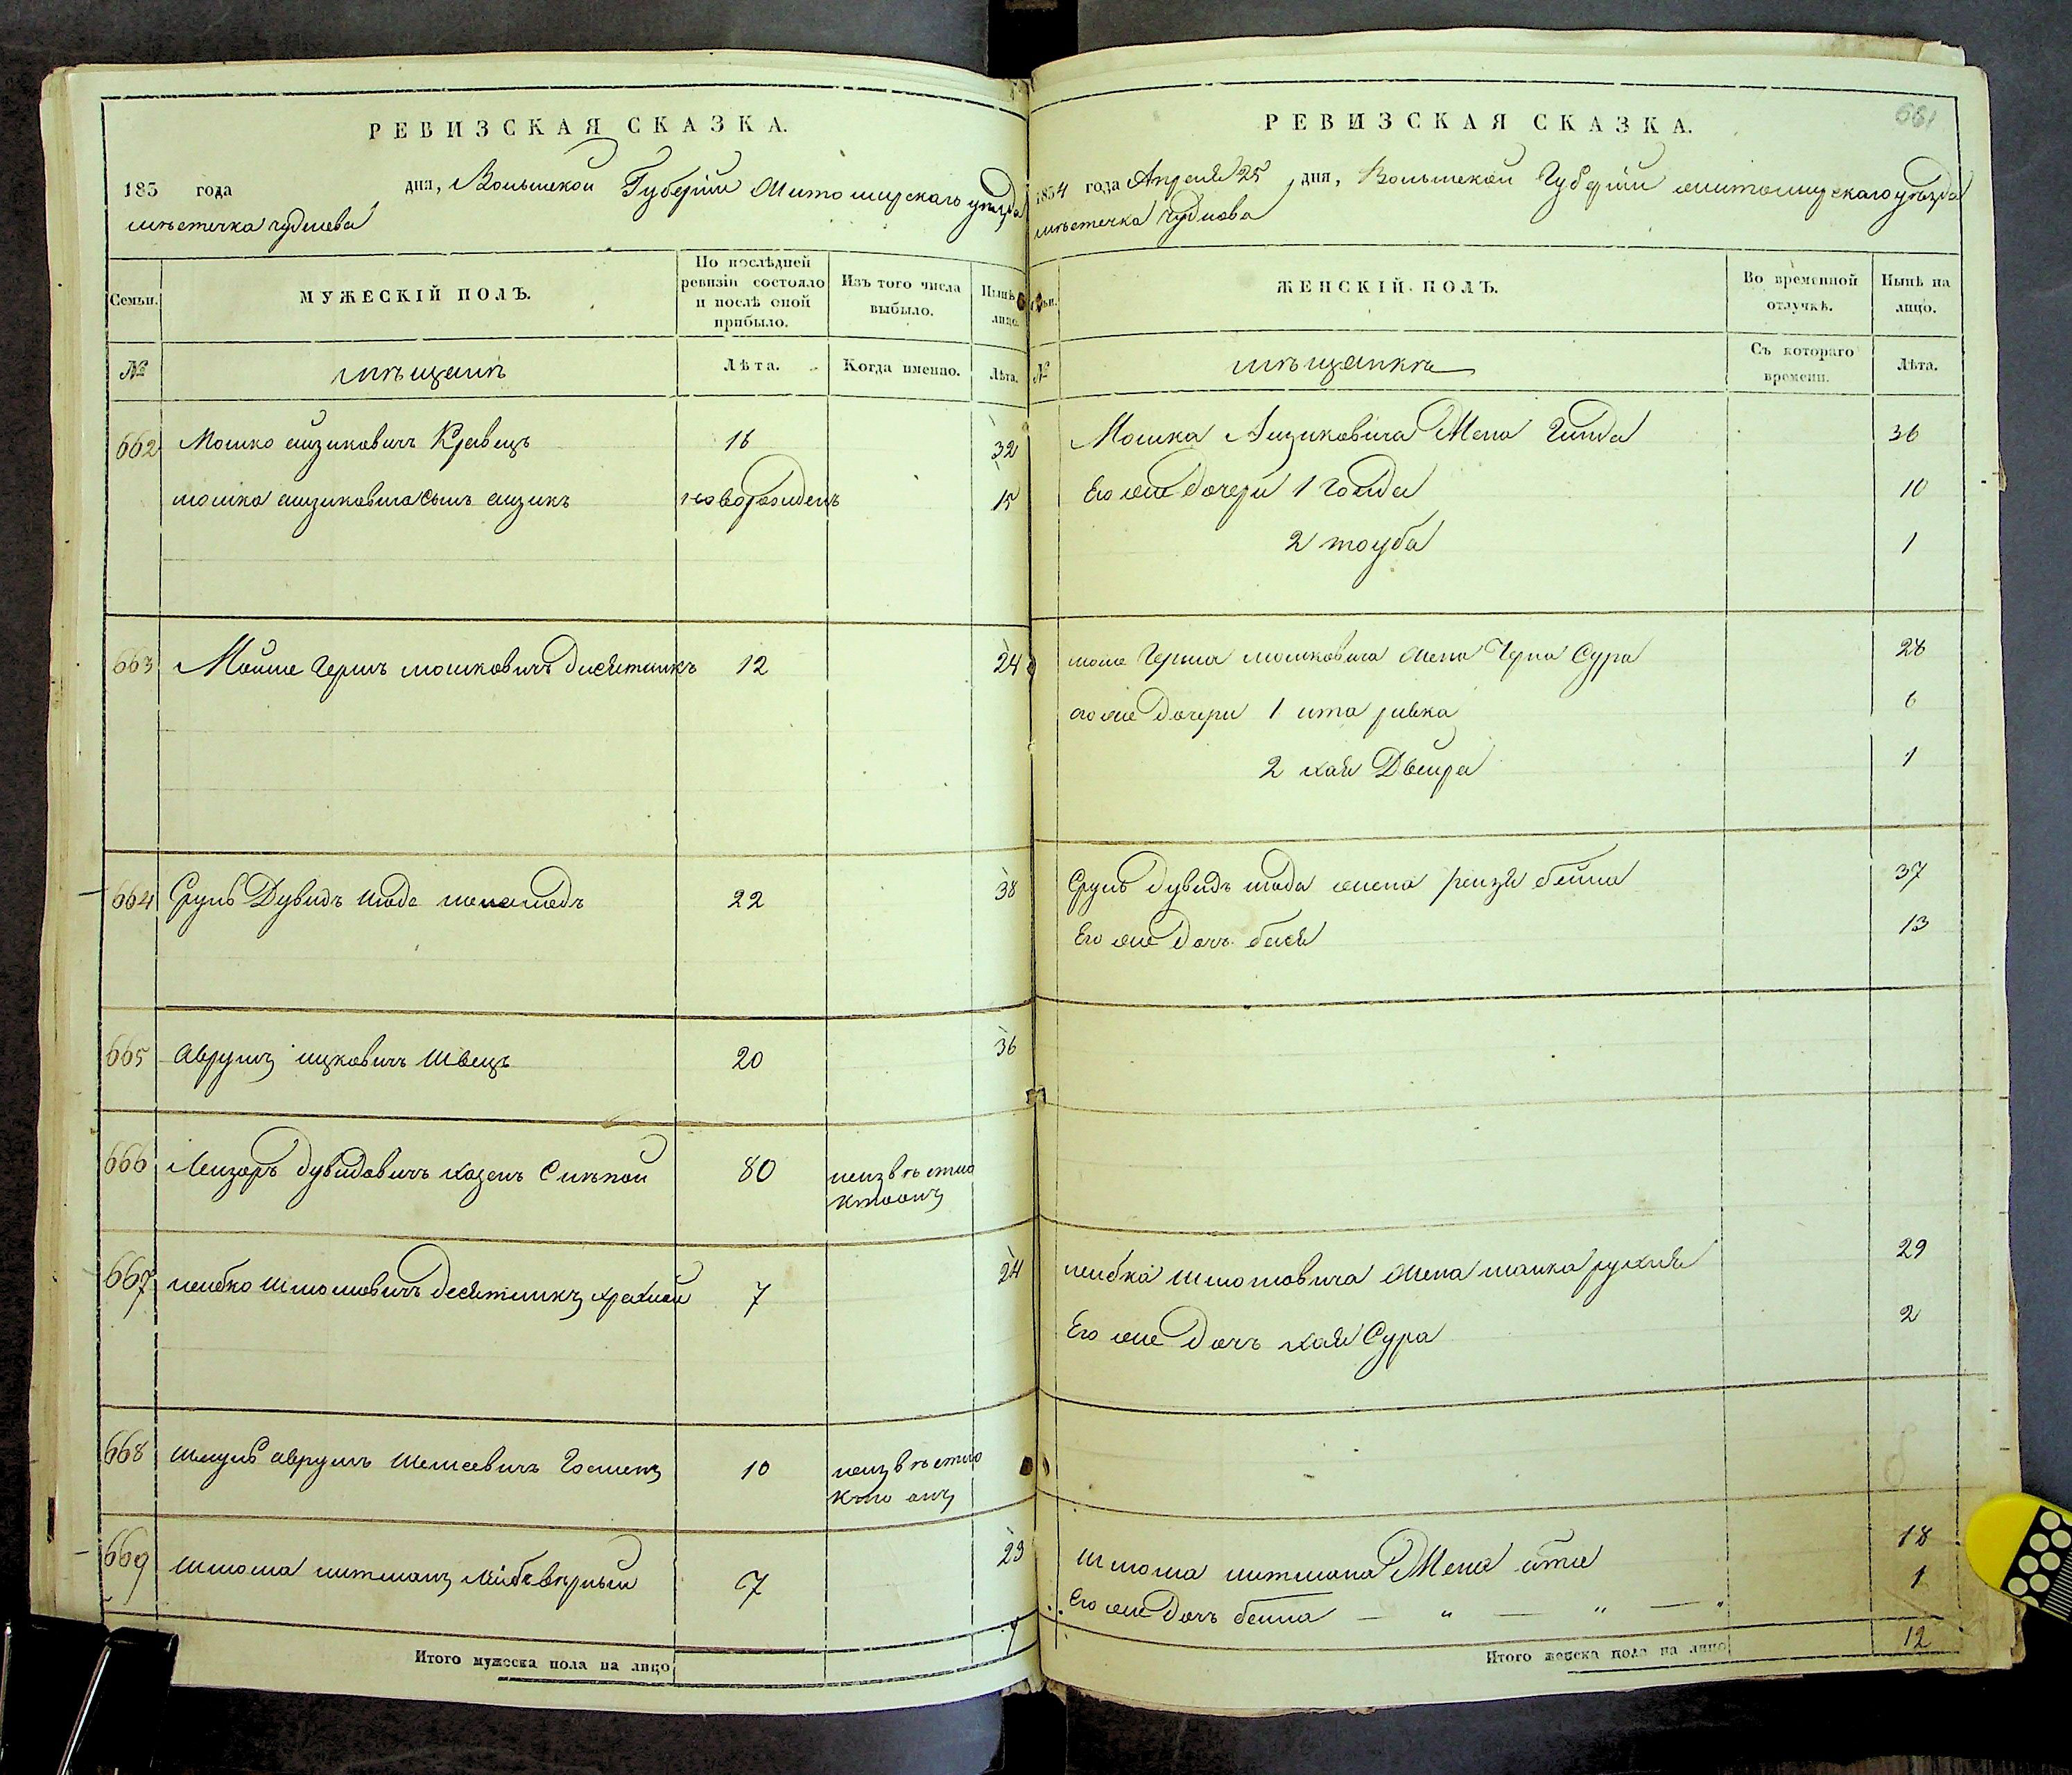 РЕВИЗСКАЯ СКАЗКА.
185 года дня, Волынской Губерніи Житомирскаго уѣзда
мѣстечка Чуднова
Семьи.
МУЖЕСКІЙ ПОЛЪ.
По послѣдней ревизіи состояло и послѣ оной прибыло.
Изъ того числа выбыло.
Нынѣ лицо.
№
мѣщанъ
Лѣта.
Когда именно.
Лѣта.
662 Мошко айзиковичъ Кравецъ 16 32
мошка айзиковича сынъ айзикъ новорожденъ 15
663 Мойше Гершъ мошковичъ Дисятникъ 12 24
664 Сруль Дувидъ 22 38
665 аврумъ ицковичъ Швецъ 20 36
666 Лейзоръ дувидовичъ Слѣпой 80 неизвѣстно
кто онъ
667 лейбко шліомовичъ десятникъ 7 24
668 Шмуль аврумъ 10 неизвѣстно
кто онъ
669 Шліома 7 23
Итого мужеска пола на лицо 7
681
РЕВИЗСКАЯ СКАЗКА.
1854 года Апреля 25 дня, Волынской Губерніи житомирскаго уѣзда
мѣстечка Чуднова
ЖЕНСКІЙ ПОЛЪ.
Во временной отлучкѣ.
Нынѣ на лицо.
№
мѣщанкъ
Съ котораго времени.
Лѣта.
Мошка Айзиковича Жена Гинда 36
Его же дочери 1 Голда 10
2 тоуба 1
моше Герша мошковича жена Черна Сура 28
его же дочери 1 ита ривка 6
2 хая Двейра 1
Сруль дувидъ жена рейзя бейла 37
Его же дочь бася 13
лейбка шліомовича жена рухля 29
Его же дочь хая Сура 2
Шліома жена 18
Его же дочь бейла — „ — „ — „ 1
Итого женска пола на лицо 12